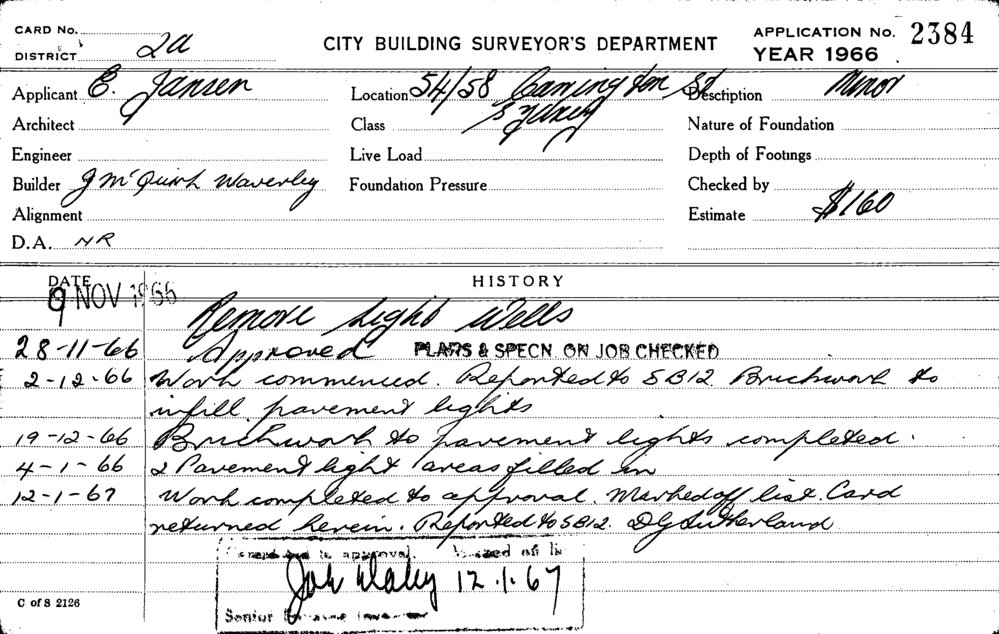 CARD No.
DISTRICT 2a
CITY BUILDING SURVEYOR'S DEPARTMENT
APPLICATION No. 2384
YEAR 1966
Applicant E. Jansen
Location 54/58 Carrington St Sydney
Description Minor
Architect
Class
Nature of Foundation
Engineer
Live Load
Depth of Footings
Builder J McQuirk Waverley
Foundation Pressure
Checked by
Alignment
Estimate $160
D.A. NR
DATE
HISTORY
9 NOV 1966
Remove Light Wells
28-11-66 Approved PLANS & SPECN. ON JOB CHECKED
2-12-66 Work commenced. Reported to SB12 Brickwork to
infill pavement lights
19-12-66 Brickwork to pavement lights completed.
4-1-66 2 Pavement light areas filled in
12-1-67 Work completed to approval. Marked off list. Card
returned herein. Reported to SB12. DG Sutherland
to approval. off
12.1.67
Senior
C of S 2126